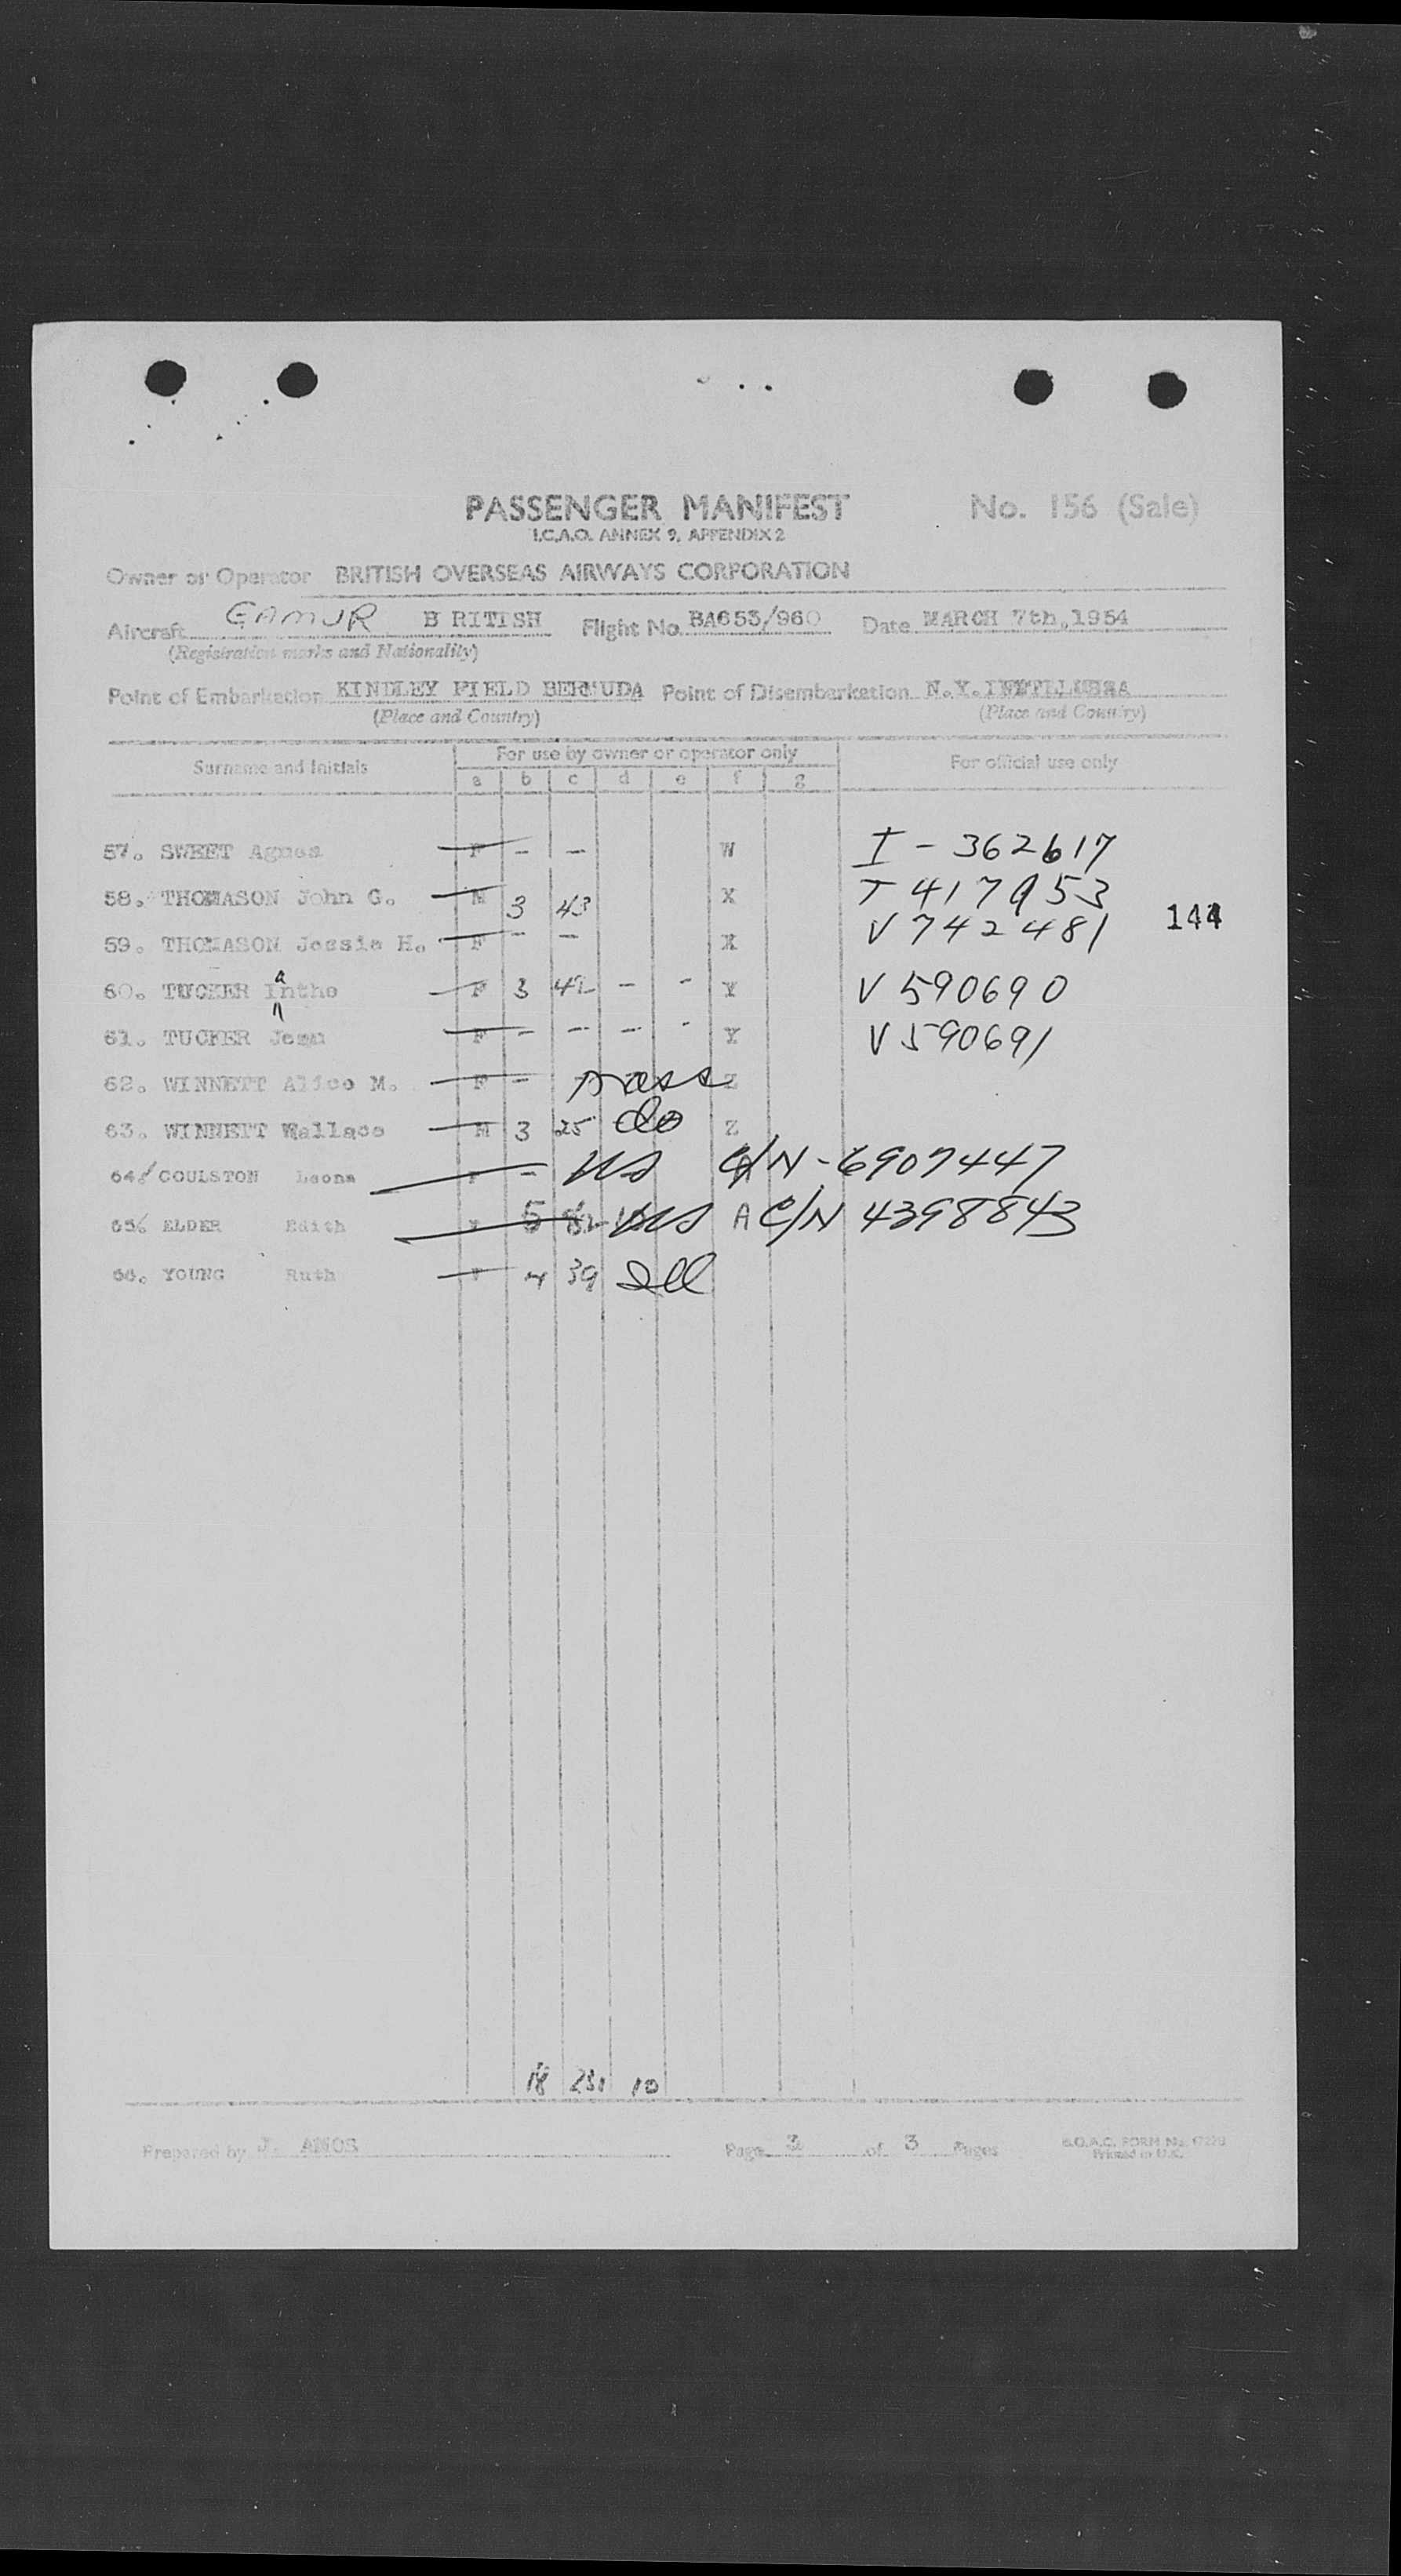 PASSENGER MANIFEST No. 156 (Sale)
I.C.A.O. ANNEX 9, APPENDIX 2
Owner or Operator BRITISH OVERSEAS AIRWAYS CORPORATION
Aircraft GAMUR B RITISH Flight No. BA653/960 Date MARCH 7th,1954
(Registration marks and Nationality)
Point of Embarkation KINDLEY FIELD BERMUDA Point of Disembarkation N.Y.
(Place and Country) (Place and Country)
Surname and Initials For use by owner or operator only For official use only
a b c d e f g
57. SWEET Agnes F - - W I - 362617
58. THOMASON John G. M 3 43 X T 417953
144
59. THOMASON Jessie H. F - - X V 742481
60. TUCKER Iantha F 3 42 - - Y V 590690
61. TUCKER Jean F - - - - Y V 590691
62. WINNETT Alice M. F - pass Z
63. WINNETT Wallace M 3 25 do Z
64. COULSTON Leona F - US C/N - 6907447
65. ELDER Edith 5 82 US A C/N 4398843
66. YOUNG Ruth F 4 39
18 231 10
Prepared by J. AMOS Page 3 of 3 Pages B.O.A.C. FORM No.
Printed in U.K.